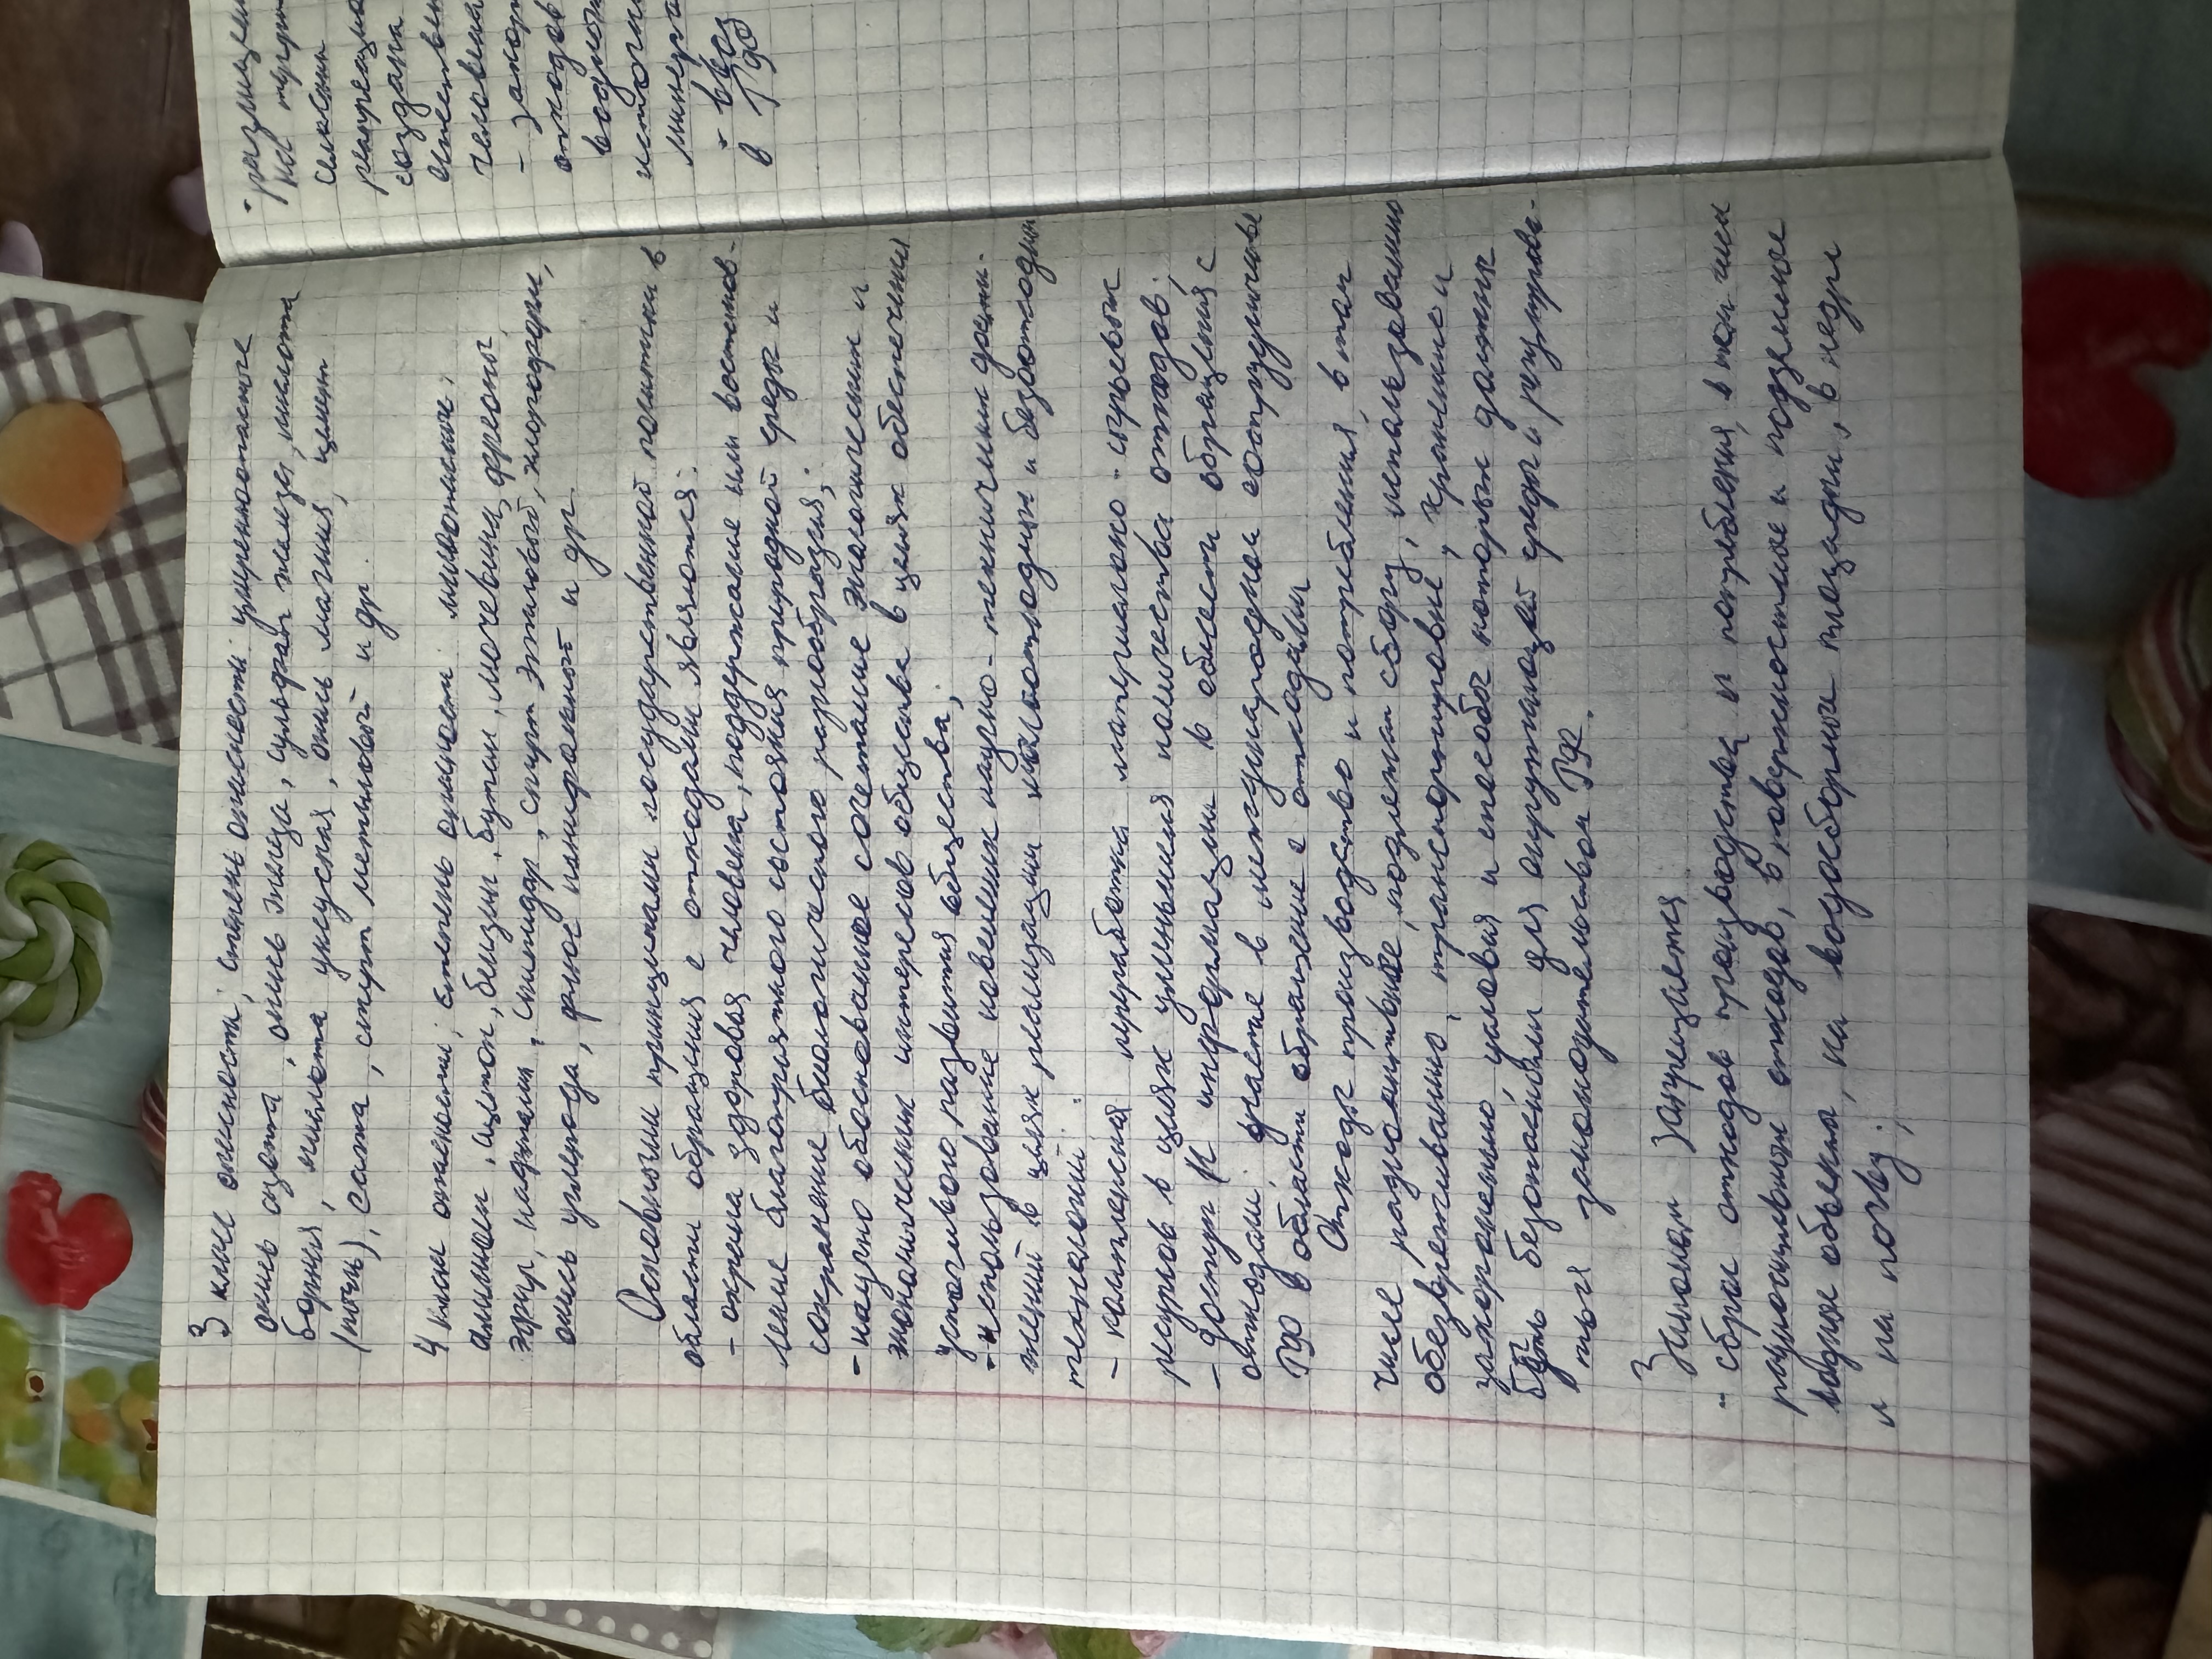 3 класс опасности; степень опасности умеренноопасные
окись азота, окись железа, сульфат железа, кислота
борная, кислота уксусная, окись магния, цинк
(пыль), сажа, спирт метиловый и др.
4 класс опасности; степень опасности малоопасные:
аммиак, ацетон, бензин, бутан, мочевина, фреоны,
эфир, нафталин, скипидар, спирт этиловый, хлороформ,
окись углерода, уголь и др.
Основными принципами государственной политики в
области обращения с отходами являются:
- охрана здоровья человека, поддержание или восстанов-
ление благоприятного состояния природной среды и
сохранение биологического разнообразия;
- научно обоснованное сочетание экологических и
экономических интересов общества в целях обеспечения
устойчивого развития общества;
- использование новейших научно-технических дости-
жений в целях реализации малоотходных и безотходных
технологий;
- комплексная переработка материально-сырьевых
ресурсов в целях уменьшения количества отходов;
- доступ к информации в области обращения с
отходами; участие в международном сотрудничестве
РФ в области обращение с отходами
Отходы производство и потребления, в том
числе радиоактивные, подлежат сбору, использованию
обезвреживанию, транспортировке, хранению и
захоронению, условия и способы которых должны
быть безопасными для окружающей среды и регулирова-
ться законодательством РФ.
Законом запрещается
- сброс отходов производства и потребления, в том числе
радиоактивных отходов, в поверхностные и подземные
водные объекты, на водосборные площади, в недра
и на почву;
- размещени
на
селения
создана
естествен
человека
- захор
отходов
водной
источни
минера
- ввоз
в РФ